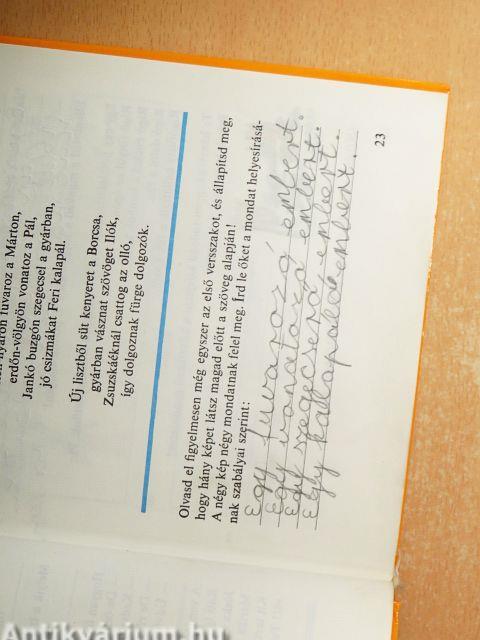 nyáron fuvaroz a Márton,
erdőn-völgyön vonatoz a Pál,
Jankó buzgón szegecsel a gyárban,
jó csizmákat Feri kalapál.
Új lisztből süt kenyeret a Borcsa,
gyárban vásznat szövöget Ilók,
Zsuzskáéknál csattog az olló,
így dolgoznak fürge dolgozók.
Olvasd el figyelmesen még egyszer az első versszakot, és állapítsd meg,
hogy hány képet látsz magad előtt a szöveg alapján!
A négy kép négy mondatnak felel meg. Írd le őket a mondat helyesírásá-
nak szabályai szerint:
Egy fuvarozó embert.
Egy vonatozó embert.
Egy szegecselő embert.
Egy kallapáló embert.
23
Antikvárium.hu